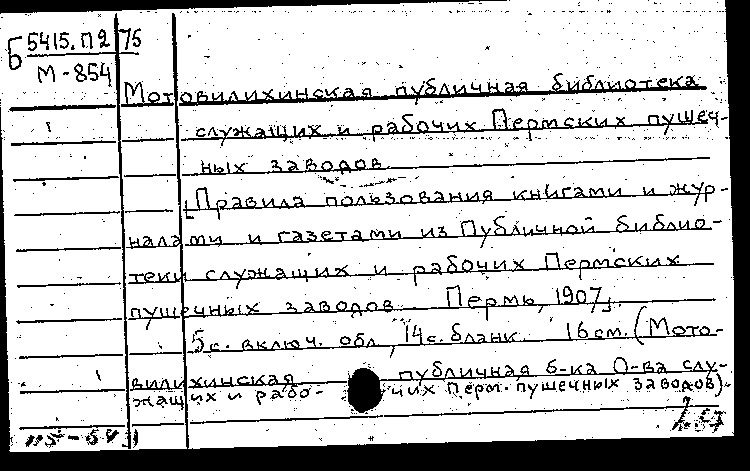 Б 5415.П2 75
М-854
Мотовилихинская публичная библиотека
служащих и рабочих Пермских пушеч-
ных заводов
[Правила пользования книгами и жур-
налами и газетами из Публичной библио-
теки служащих и рабочих Пермских
пушечных заводов. Пермь, 1907].
5с. включ. обл., 14с. бланк. 16 см. (Мото-
вилихинская публичная б-ка О-ва слу-
жащих и рабо- чих Перм. пушечных заводов).